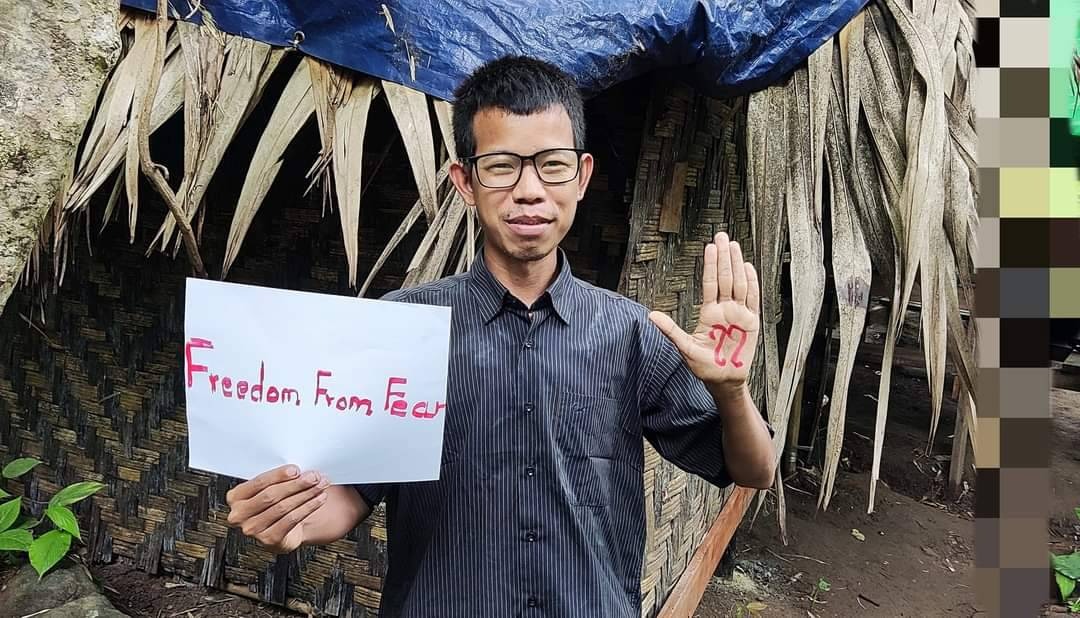 Freedom From Fear
၇၇